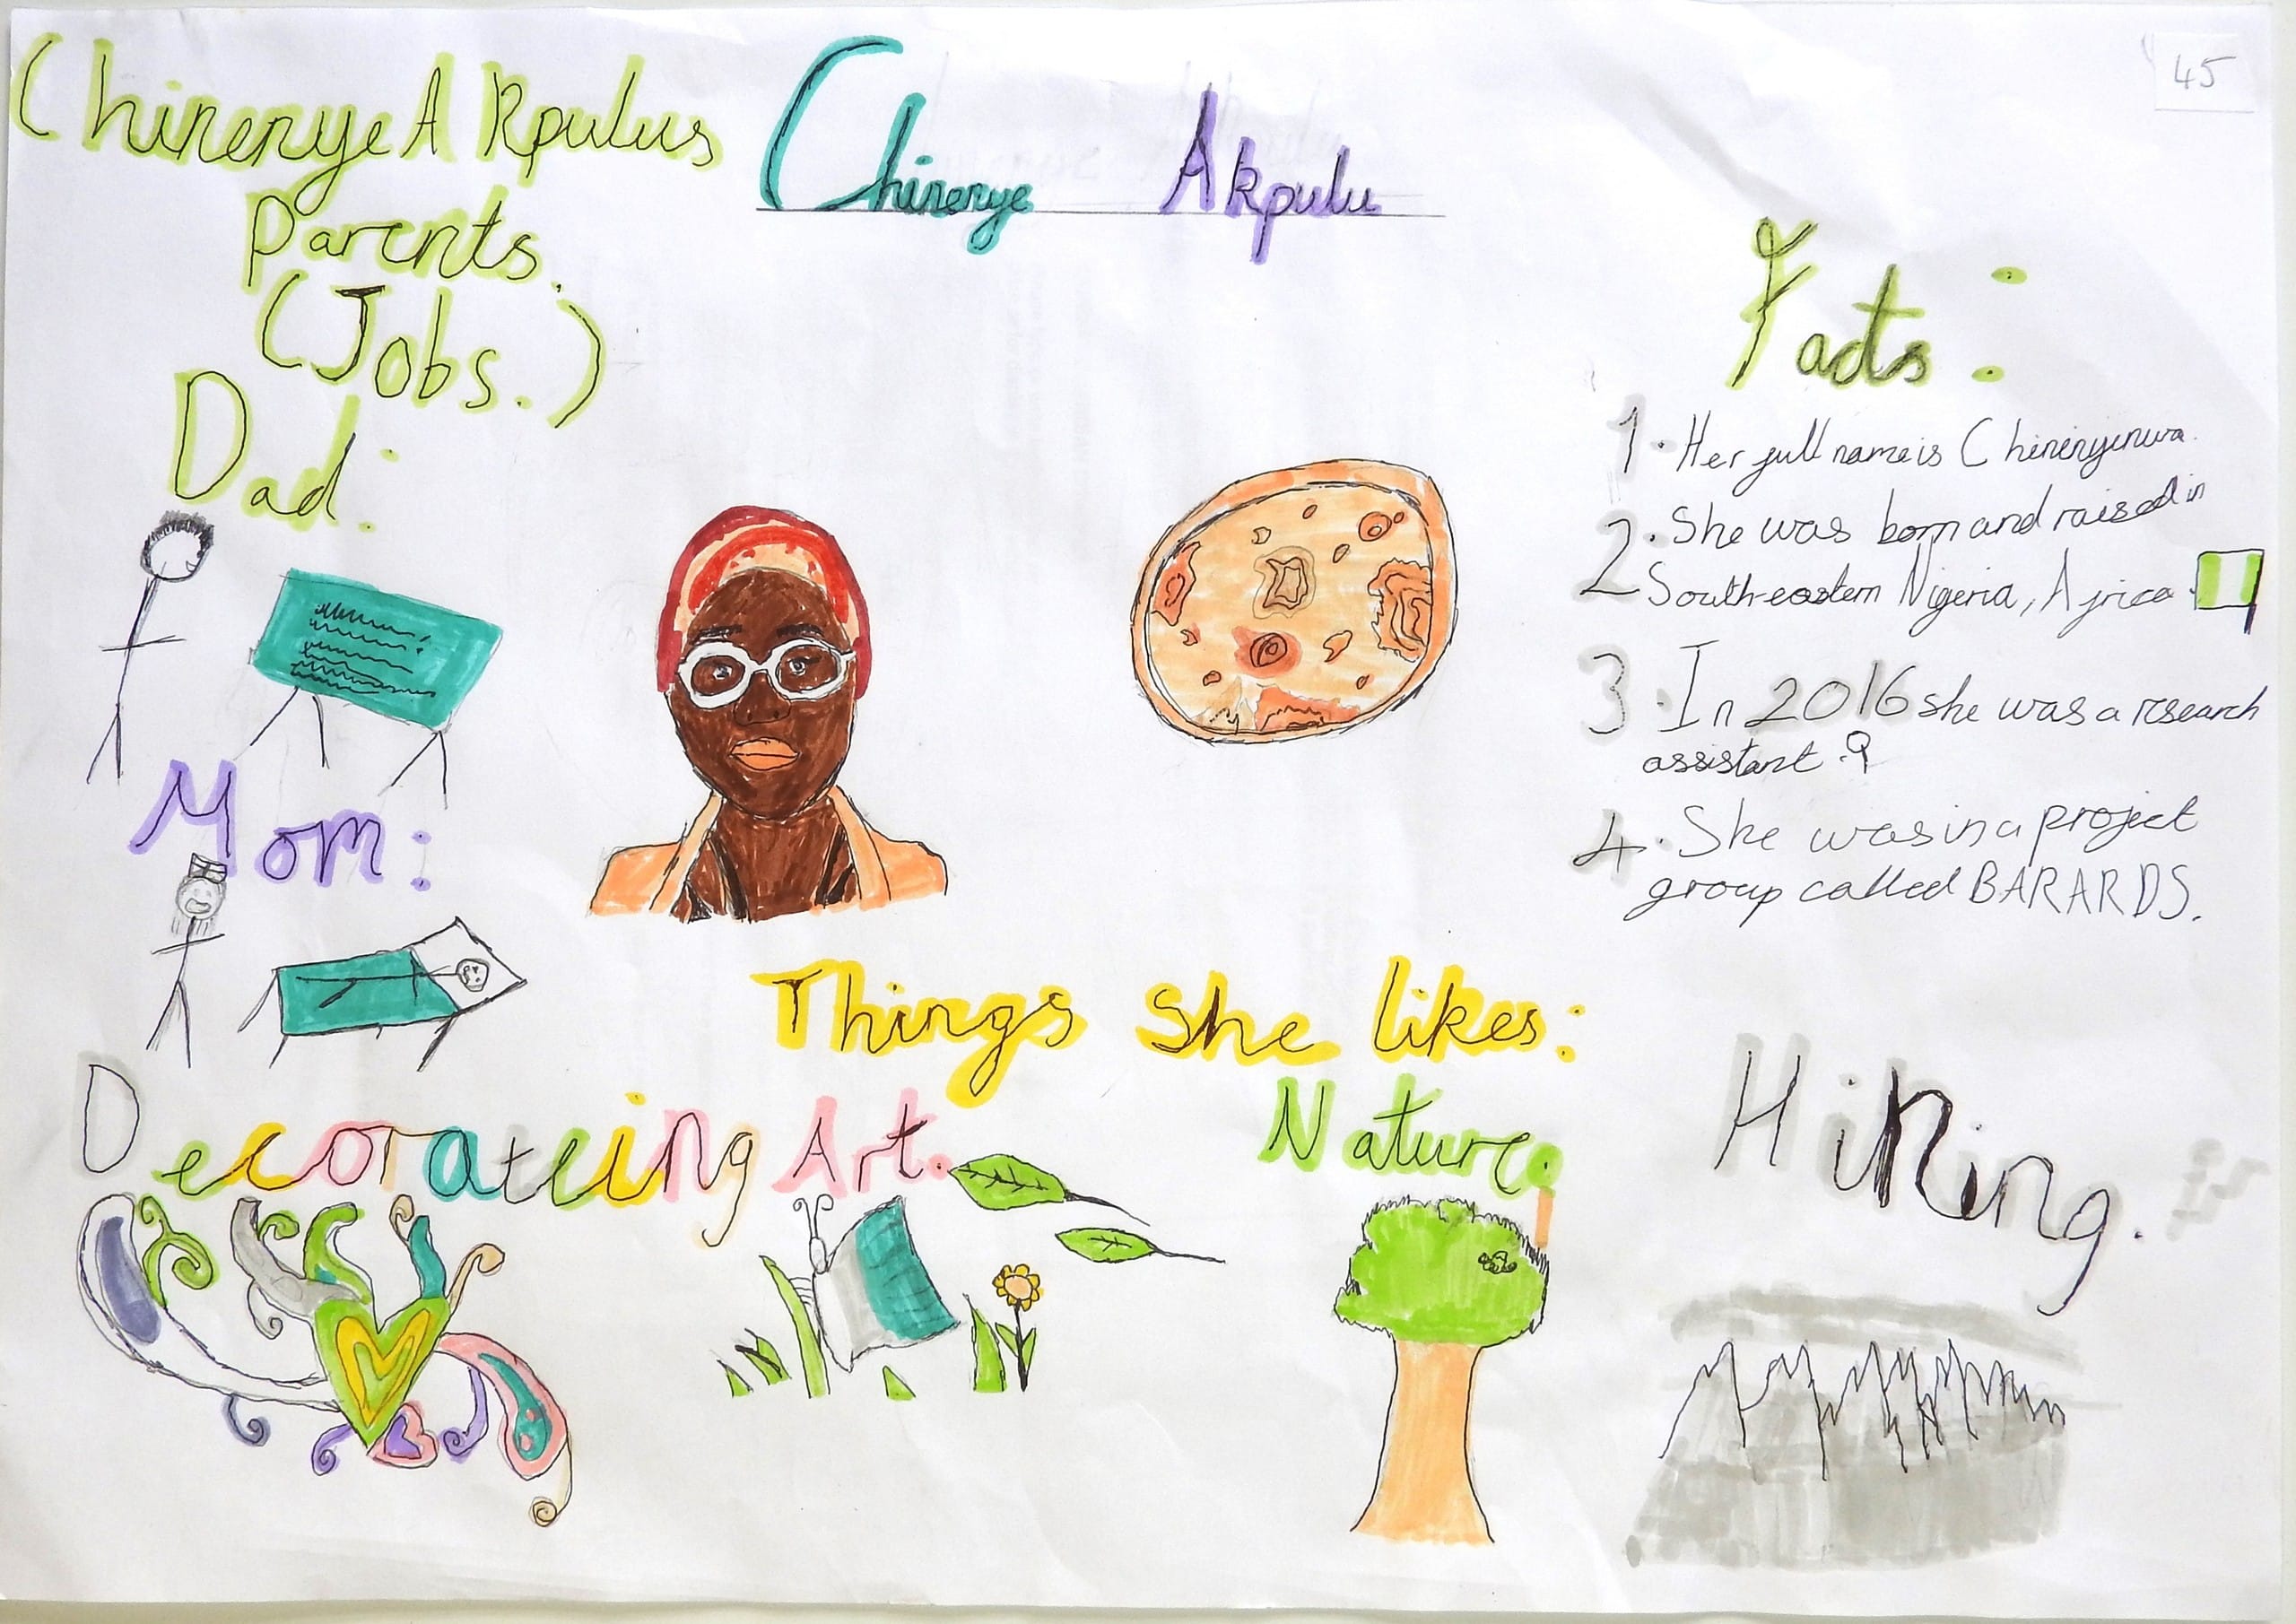 Chinenye Akpulu
45
Chinenye Akpulus
Parents.
(Jobs.)
Dad:
Mom:
Facts:
1. Her full name is Chinenyenwa.
2. She was born and raised in
South-eastern Nigeria, Africa.
3. In 2016 she was a research
assistant.
4. She was in a project
group called BARARDS.
Things she likes:
Decorateing Art.
Nature.
Hiking.